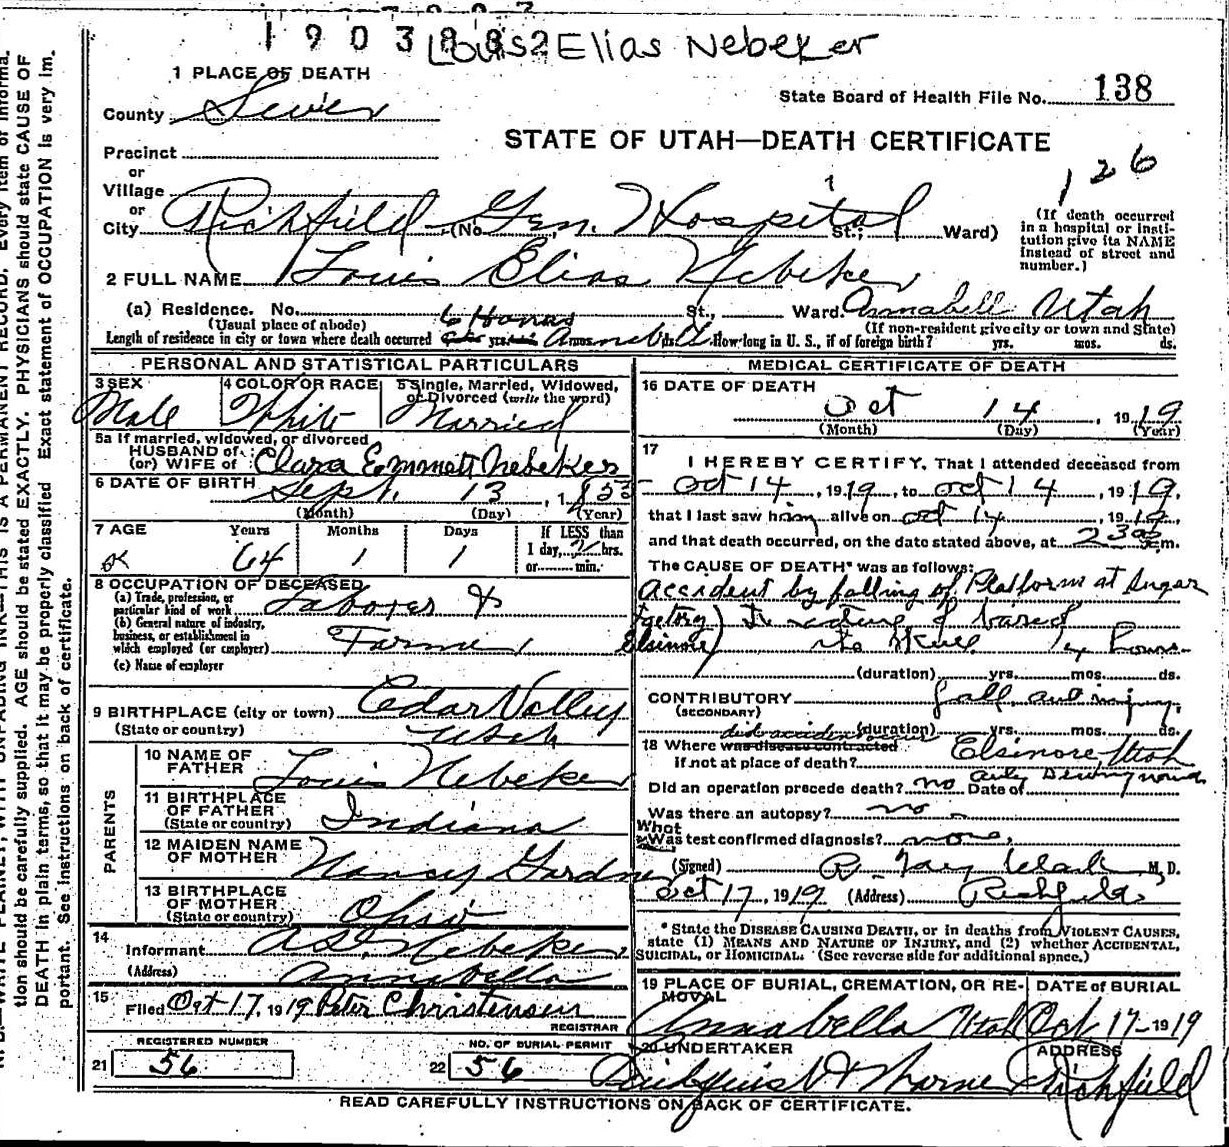 1903882 Louis Elias Nebeker
1 PLACE OF DEATH
State Board of Health File No. 138
County Sevier
STATE OF UTAH—DEATH CERTIFICATE
Precinct
126
or
Village
or
City Richfield (No. Gen. Hospital St.; Ward)
(If death occurred in a hospital or institution give its NAME instead of street and number.)
2 FULL NAME Louis Elias Nebeker
(a) Residence. No. St., Ward. Annabell Utah
(Usual place of abode) (If non-resident give city or town and State)
Length of residence in city or town where death occurred 6 Hours yrs. mos. ds. How long in U. S., if of foreign birth? yrs. mos. ds.
PERSONAL AND STATISTICAL PARTICULARS
3 SEX Male
4 COLOR OR RACE White
5 Single, Married, Widowed, or Divorced (write the word) Married
5a If married, widowed, or divorced
HUSBAND of
(or) WIFE of Clara Emmett Nebeker
6 DATE OF BIRTH Sept. 13, 185
(Month) (Day) (Year)
7 AGE Years Months Days If LESS than
64 1 1 1 day, hrs.
or min.
8 OCCUPATION OF DECEASED
(a) Trade, profession, or particular kind of work Laborer &
(b) General nature of industry, business, or establishment in which employed (or employer) Farmer
(c) Name of employer
9 BIRTHPLACE (city or town) Cedar Valley
(State or country) Utah
PARENTS
10 NAME OF FATHER Louis Nebeker
11 BIRTHPLACE OF FATHER (State or country) Indiana
12 MAIDEN NAME OF MOTHER Nancy Gardner
13 BIRTHPLACE OF MOTHER (State or country) Ohio
14
Informant Nebeker
(Address) Annabella
15 Filed Oct 17, 1919 Peter Christensen
REGISTRAR
REGISTERED NUMBER
21 56
NO. OF BURIAL PERMIT
22 56
MEDICAL CERTIFICATE OF DEATH
16 DATE OF DEATH
Oct 14, 1919
(Month) (Day) (Year)
17 I HEREBY CERTIFY, That I attended deceased from
Oct 14, 1919, to Oct 14, 1919,
that I last saw him alive on Oct 14, 1919,
and that death occurred, on the date stated above, at 230 m.
The CAUSE OF DEATH* was as follows:
Accident by falling of Platform at Sugar
factory) Fracture of base of
Elsinore) the skull hours
(duration) yrs. mos. ds.
CONTRIBUTORY fall and injury
(SECONDARY)
(duration) yrs. mos. ds.
18 Where was disease contracted did accident occur
If not at place of death? Elsinore, Utah
Did an operation precede death? no Date of only
Was there an autopsy? no
What test confirmed diagnosis? none
(Signed) R. M. D.
Oct 17, 1919 (Address) Richfield
* State the DISEASE CAUSING DEATH, or in deaths from VIOLENT CAUSES,
state (1) MEANS AND NATURE OF INJURY, and (2) whether ACCIDENTAL,
SUICIDAL, or HOMICIDAL. (See reverse side for additional space.)
19 PLACE OF BURIAL, CREMATION, OR REMOVAL
Annabella Utah
DATE of BURIAL
Oct 17-1919
20 UNDERTAKER
ADDRESS
Richfield
READ CAREFULLY INSTRUCTIONS ON BACK OF CERTIFICATE.
tion should be carefully supplied. AGE should be stated EXACTLY. PHYSICIANS should state CAUSE OF
DEATH in plain terms, so that it may be properly classified. Exact statement of OCCUPATION is very im-
portant. See instructions on back of certificate.